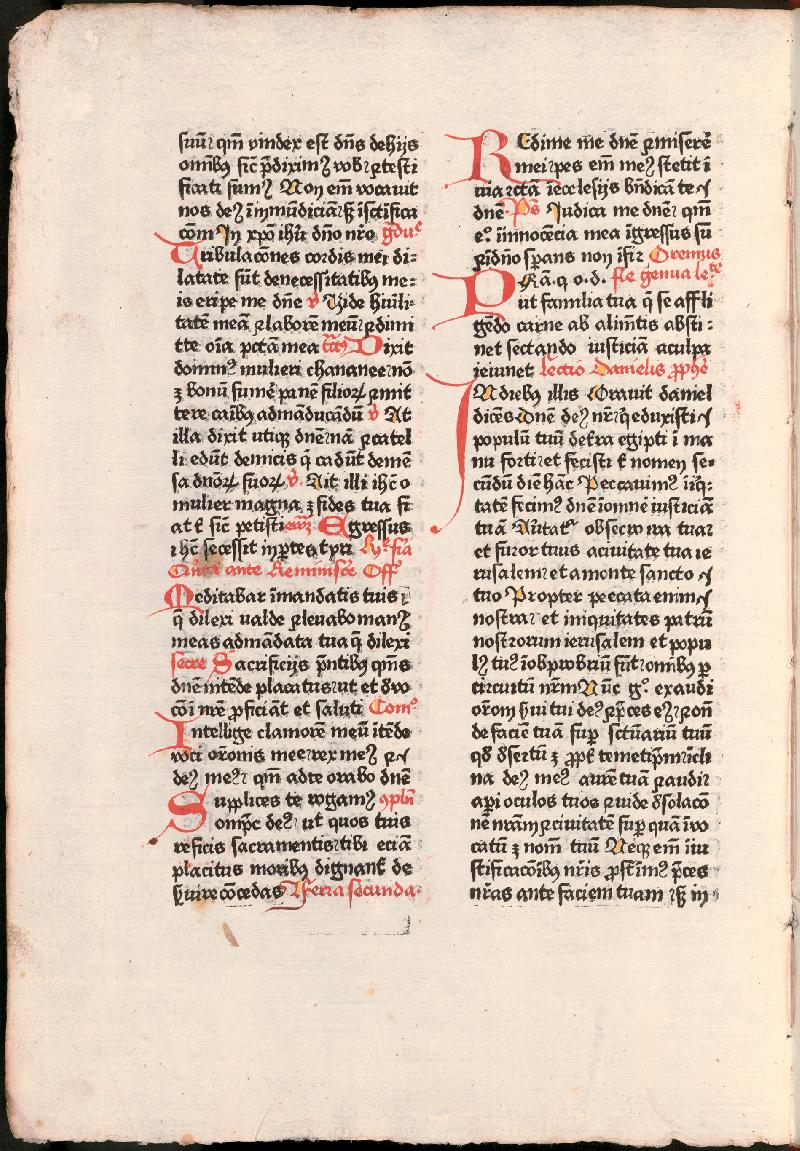 suū: qm̄ vindex est dn̄s de hijs
om̄ibꝰ sic̄ p̄diximꝰ vob̄ ꝛ testi
ficati sumꝰ Non em̄ vocauit
nos deꝰ ī īmūdiciā: sꝫ ī sctīfica
cōm̄ In xp̄o ih̄u dn̄o nr̄o gͣduꝭ
Tribulacōnes cordis mei di-
latate sūt de necessitatibꝰ me-
is eripe me dn̄e v̄ Vide hūili-
tatē meā ꝛ laborē meū: ꝛ dimi
tte oīa pctā mea tctꝰ Dixit
dominꝰ mulieri chananee: nō
ꝫ bonū sumē panē filioꝝ ꝛ mit
tere canibꝰ ad māducādū v̄ At
illa dixit utiqꝫ dn̄e: nā ꝛ catel
li edūt de micis q̄ cadūt de mē
sa dn̄oꝝ suoꝝ v̄. Ait illi ih̄c o
mulier magna ꝫ fides tua fi
at t̄ sic̄ petisti ewꝫ Egressus
ih̄c secessit in p̄tes tyri Rͤ. fr̄ia
Quīta ante Reminiscē Off̄ꝭ
Meditabar ī mandatis tuis:
q̄ dilexi ualde ꝛ leuabo manꝰ
meas ad mādata tua q̄ dilexi
secre Sacrificijs p̄ntibꝰ qm̄s
dn̄e intēde placatus: ut et d̓vo
cōi nr̄e ꝓficiāt et saluti Com̄ꝰ
Intellige clamorē meū ītēde
voci or̄onis mee: rex meꝰ ꝛ
deꝰ meꝰ: qm̄ ad te orabo dn̄e
Supplices te rogamꝰ ꝯpln̄
om̄pc̄ deꝰ: ut quos tuis
reficis sacramentis: tibi eciā
placitus moribꝰ dignant̄ de
ẜuire cōcedas Feria secunda
Redime me dn̄e ꝛ miserē
mei: pes em̄ meꝰ stetit ī
uia rctā ī ecclesijs bn̄dicā te
dn̄e: Pꝭ Iudica me dn̄e: qm̄
eꝰ. ī innocēcia mea īgressus sū
ꝛ ī dn̄o spans non īfir̄ Oremus
Pͬtā. q. o. d. flē genua leꝭͭᵉ
ut familia tua q̄ se affli
gēdo carne ab alimētis absti:
net sectando iusticiā a culpa
ieiunet lectio Danielis ꝓphē
In diebꝰ illis Orauit daniel
dicēs Dn̄e deꝰ nr̄: q̄ eduxisti
populū tuū de t̄ra egipti ī ma
nu forti: et fecisti t̄ nomen se-
cūdū diē hāc Peccauimꝰ īiq̄-
tatē fecimꝰ dn̄e ī omnē iusticiā
tuā Auertatᷣ obsecro ira tua:
et furor tuus a ciuitate tua ie
rusalem: et a monte sancto
tuo Propter peccata enim
nostra: et iniquitates patrū
nostrorum ierusalem et popu
lꝰ tuꝰ ī obprobriū sūt: omibꝰ ꝑ
circuitū nr̄m Nūc gͦ. exaudi
or̄om ẜui tui deꝰ ꝛ p̄ces eꝰ: ꝛ on̄
de faciē tuā suꝑ sctuariū tuū
qd̓ d̓sertū ꝫ ꝓpt̄ temetip̄m: īcli
na deꝰ meꝰ aurē tuā ꝛ audi:
api oculos tuos ꝛ uide d̓solacō
nē nr̄am ꝛ ciuitatē suꝑ quā īvo
catū ꝫ nom̄ tuū Neqꝫ em̄ ī iu
stificacōibꝰ nr̄is ꝓst̄imꝰ p̄ces
nr̄as ante faciem tuam: sꝫ in